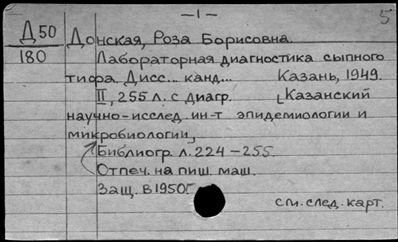 — 1 —
5
Д 50
180
Донская, Роза Борисовна.
Лабораторная диагностика сыпного
тифа. Дисс... канд... Казань, 1949.
II, 255 л. с диагр. [Казанский
научно-исслед. ин-т эпидемиологии и
микробиологии,
Библиогр. л. 224-255.
Отпеч. на пиш. маш.
Защ. в 1950г
см. след. карт.